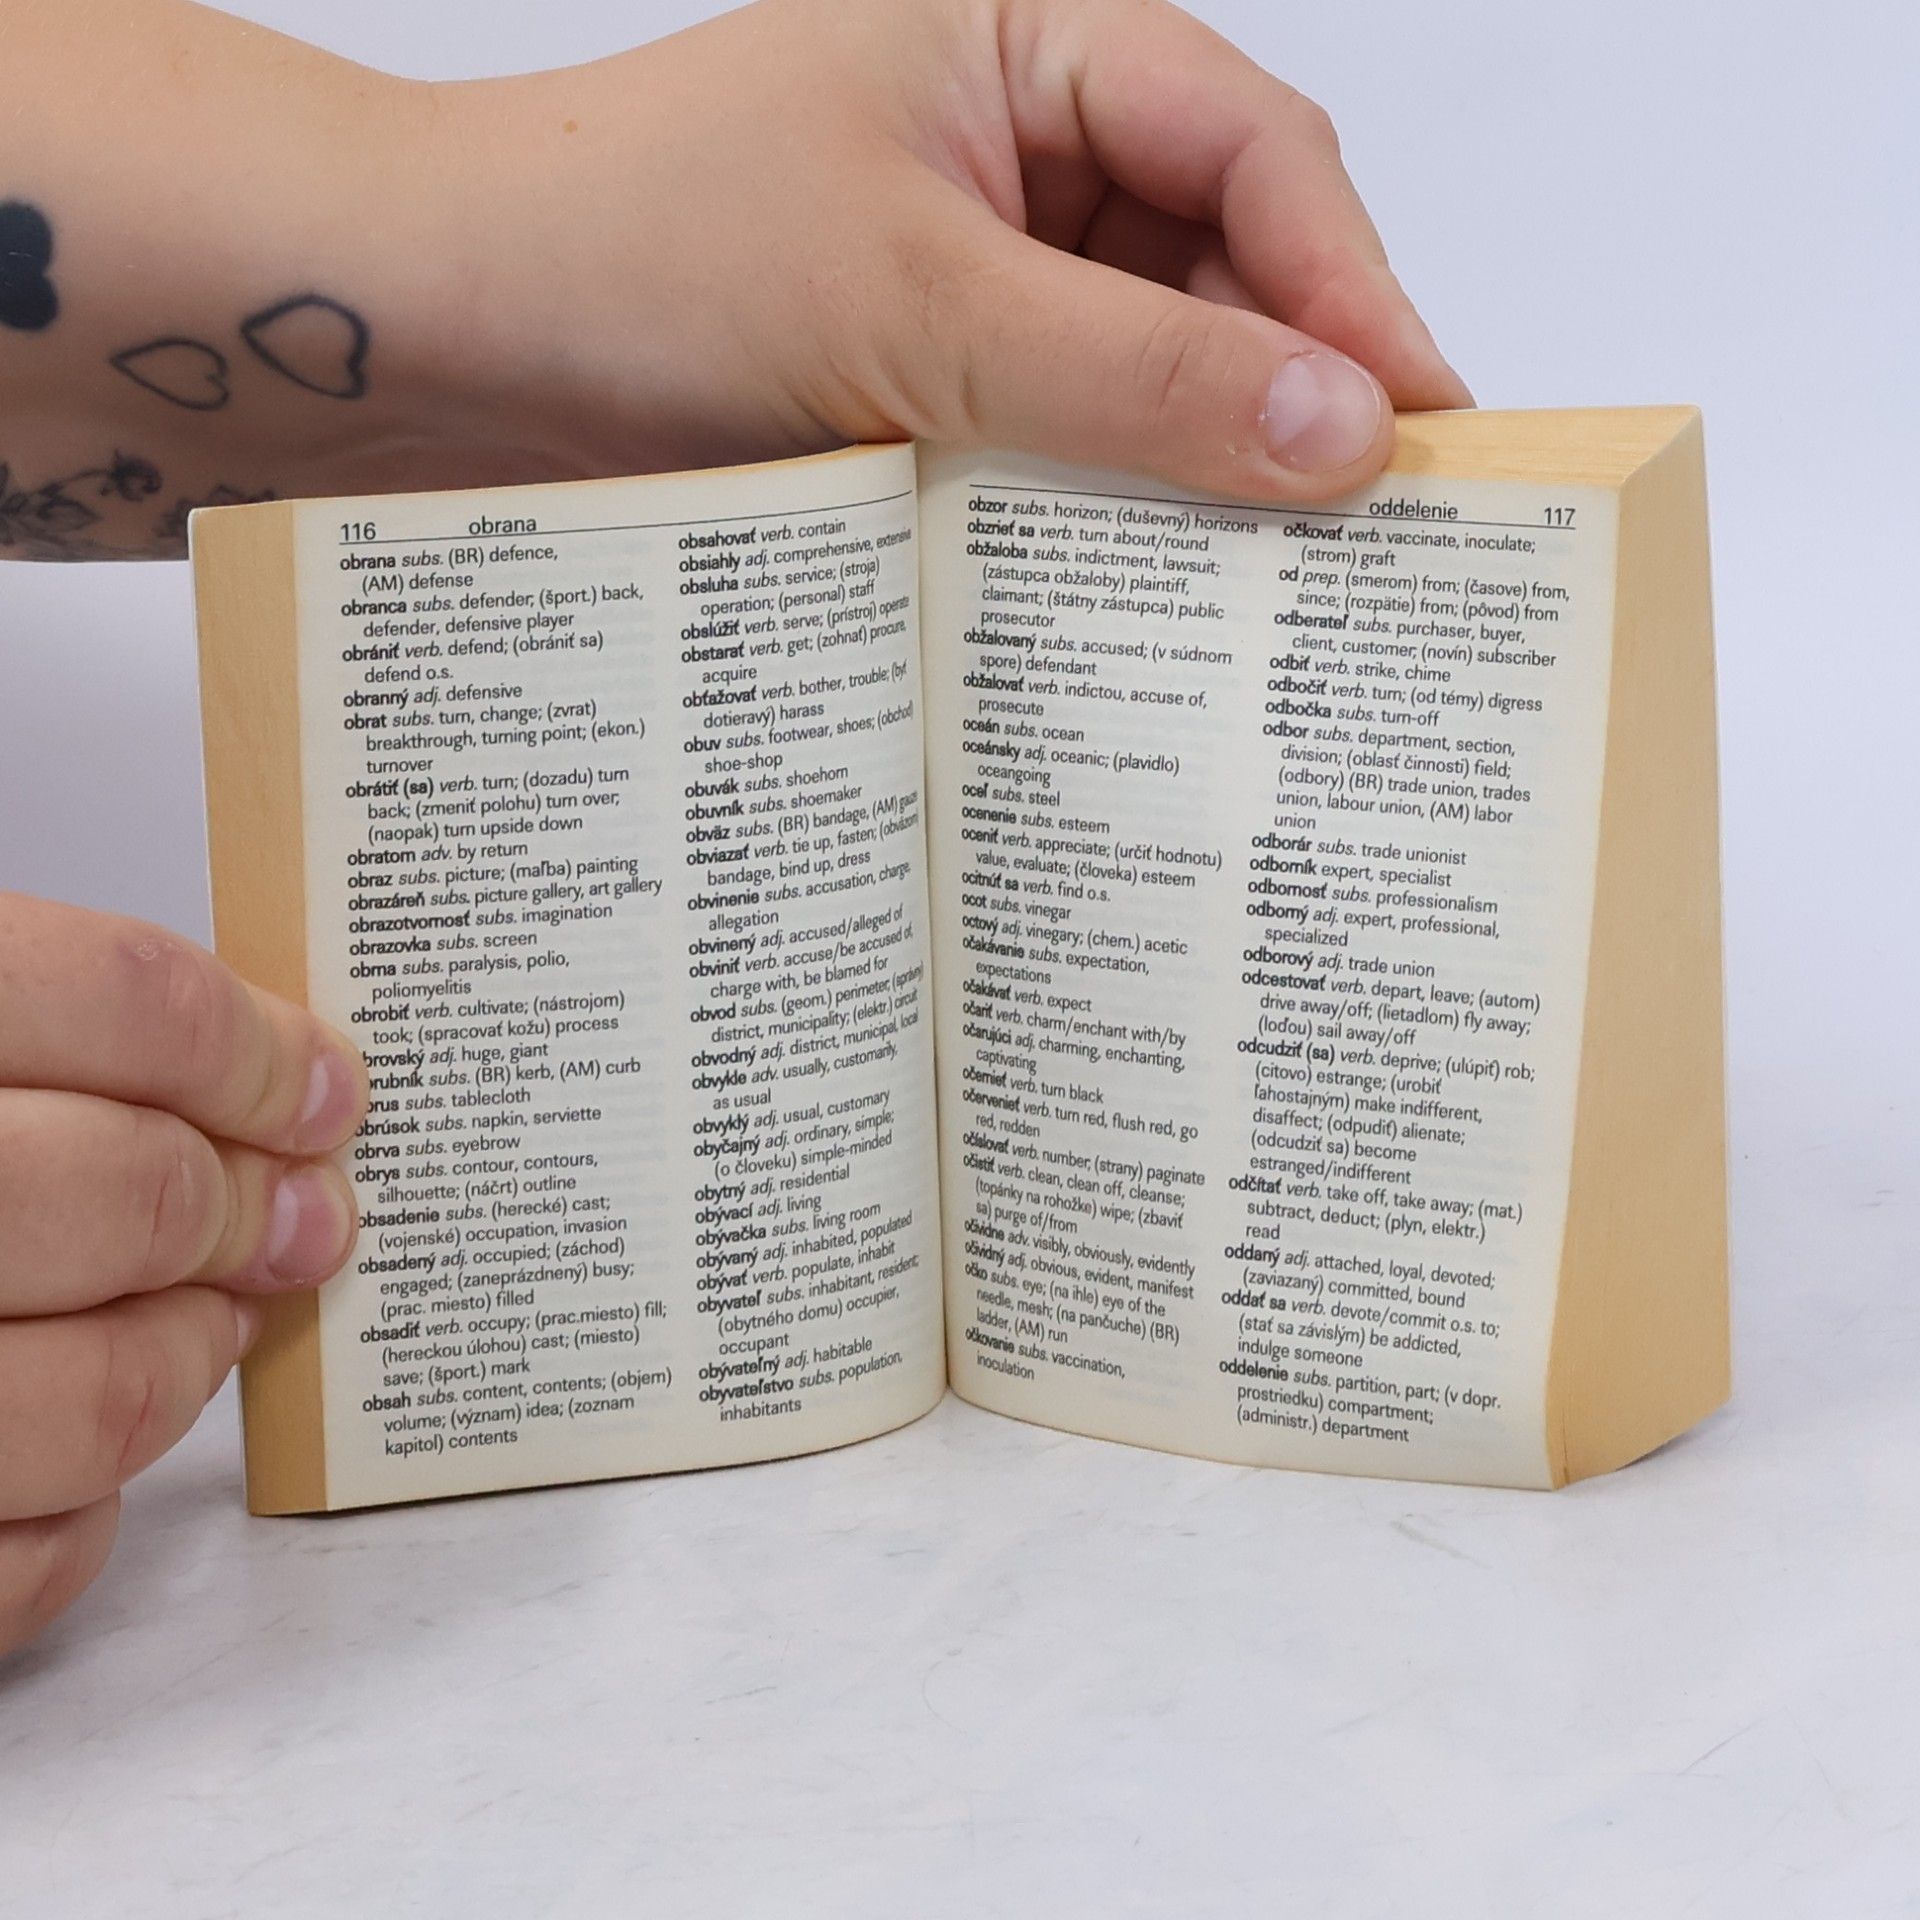 116 obrana
obrana subs. (BR) defence,
(AM) defense
obranca subs. defender, (šport.) back,
defender, defensive player
obrániť verb. defend; (obrániť sa)
defend o.s.
obranný adj. defensive
obrat subs. turn, change; (zvrat)
breakthrough, turning point; (ekon.)
turnover
obrátiť (sa) verb. turn; (dozadu) turn
back; (zmeniť polohu) turn over;
(naopak) turn upside down
obratom adv. by return
obraz subs. picture; (maľba) painting
obrazáreň subs. picture gallery, art gallery
obrazotvornosť subs. imagination
obrazovka subs. screen
obrna subs. paralysis, polio,
poliomyelitis
obrobiť verb. cultivate; (nástrojom)
took; (spracovať kožu) process
brovský adj. huge, giant
rubník subs. (BR) kerb, (AM) curb
brus subs. tablecloth
obrúsok subs. napkin, serviette
obrva subs. eyebrow
obrys subs. contour, contours,
silhouette; (náčrt) outline
obsadenie subs. (herecké) cast;
(vojenské) occupation, invasion
obsadený adj. occupied; (záchod)
engaged; (zaneprázdnený) busy;
(prac. miesto) filled
obsadiť verb. occupy; (prac.miesto) fill;
(hereckou úlohou) cast; (miesto)
save; (šport.) mark
obsah subs. content, contents; (objem)
volume; (význam) idea; (zoznam
kapitol) contents
obsahovať verb. contain
obsiahly adj. comprehensive, extensive
obsluha subs. service; (stroja)
operation; (personal) staff
obslúžiť verb. serve; (prístroj) operate
obstarať verb. get; (zohnať) procure,
acquire
obťažovať verb. bother, trouble; (byť
dotieravý) harass
obuv subs. footwear, shoes; (obchod)
shoe-shop
obuvák subs. shoehorn
obuvník subs. shoemaker
obväz subs. (BR) bandage, (AM) gauze
obviazať verb. tie up, fasten; (obväzom)
bandage, bind up, dress
obvinenie subs. accusation, charge,
allegation
obvinený adj. accused/alleged of
obviniť verb. accuse/be accused of,
charge with, be blamed for
obvod subs. (geom.) perimeter; (správny)
district, municipality; (elektr.) circuit
obvodný adj. district, municipal, local
obvykle adv. usually, customarily,
as usual
obvyklý adj. usual, customary
obyčajný adj. ordinary, simple;
(o človeku) simple-minded
obytný adj. residential
obývací adj. living
obývačka subs. living room
obývaný adj. inhabited, populated
obývať verb. populate, inhabit
obyvateľ subs. inhabitant, resident;
(obytného domu) occupier,
occupant
obývateľný adj. habitable
obyvateľstvo subs. population,
inhabitants
oddelenie 117
obzor subs. horizon; (duševný) horizons
obzrieť sa verb. turn about/round
obžaloba subs. indictment, lawsuit;
(zástupca obžaloby) plaintiff,
claimant; (štátny zástupca) public
prosecutor
obžalovaný subs. accused; (v súdnom
spore) defendant
obžalovať verb. indictou, accuse of,
prosecute
oceán subs. ocean
oceánsky adj. oceanic; (plavidlo)
oceangoing
oceľ subs. steel
ocenenie subs. esteem
oceniť verb. appreciate; (určiť hodnotu)
value, evaluate; (človeka) esteem
ocitnúť sa verb. find o.s.
ocot subs. vinegar
octový adj. vinegary; (chem.) acetic
očakávanie subs. expectation,
expectations
očakávať verb. expect
očariť verb. charm/enchant with/by
očarujúci adj. charming, enchanting,
captivating
očernieť verb. turn black
očervenieť verb. turn red, flush red, go
red, redden
očíslovať verb. number, (strany) paginate
očistiť verb. clean, clean off, cleanse;
(topánky na rohožke) wipe; (zbaviť
sa) purge of/from
očividne adv. visibly, obviously, evidently
očividný adj. obvious, evident, manifest
očko subs. eye; (na ihle) eye of the
needle, mesh; (na pančuche) (BR)
ladder, (AM) run
očkovanie subs. vaccination,
inoculation
očkovať verb. vaccinate, inoculate;
(strom) graft
od prep. (smerom) from; (časove) from,
since; (rozpätie) from; (pôvod) from
odberateľ subs. purchaser, buyer,
client, customer; (novín) subscriber
odbiť verb. strike, chime
odbočiť verb. turn; (od témy) digress
odbočka subs. turn-off
odbor subs. department, section,
division; (oblasť činnosti) field;
(odbory) (BR) trade union, trades
union, labour union, (AM) labor
union
odborár subs. trade unionist
odborník expert, specialist
odbornosť subs. professionalism
odborný adj. expert, professional,
specialized
odborový adj. trade union
odcestovať verb. depart, leave; (autom)
drive away/off; (lietadlom) fly away;
(loďou) sail away/off
odcudziť (sa) verb. deprive; (ulúpiť) rob;
(citovo) estrange; (urobiť
ľahostajným) make indifferent,
disaffect; (odpudiť) alienate;
(odcudziť sa) become
estranged/indifferent
odčítať verb. take off, take away; (mat.)
subtract, deduct; (plyn, elektr.)
read
oddaný adj. attached, loyal, devoted;
(zaviazaný) committed, bound
oddať sa verb. devote/commit o.s. to;
(stať sa závislým) be addicted,
indulge someone
oddelenie subs. partition, part; (v dopr.
prostriedku) compartment;
(administr.) department